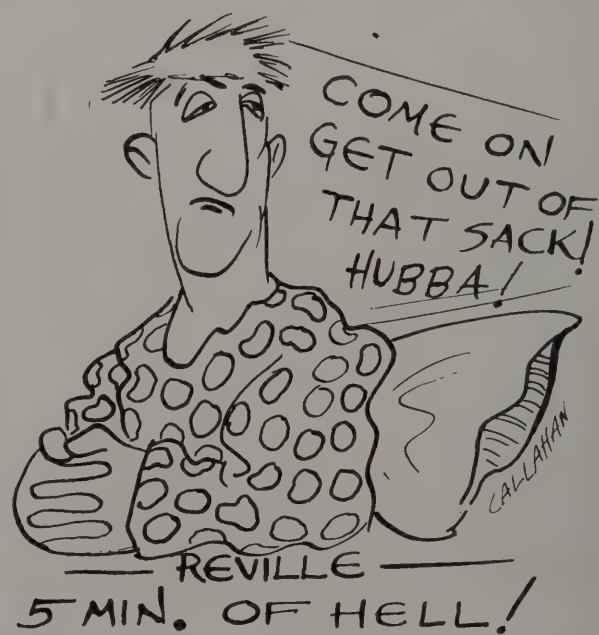 COME ON
GET OUT OF
THAT SACK!
HUBBA!
CALLAHAN
REVILLE
5 MIN. OF HELL!